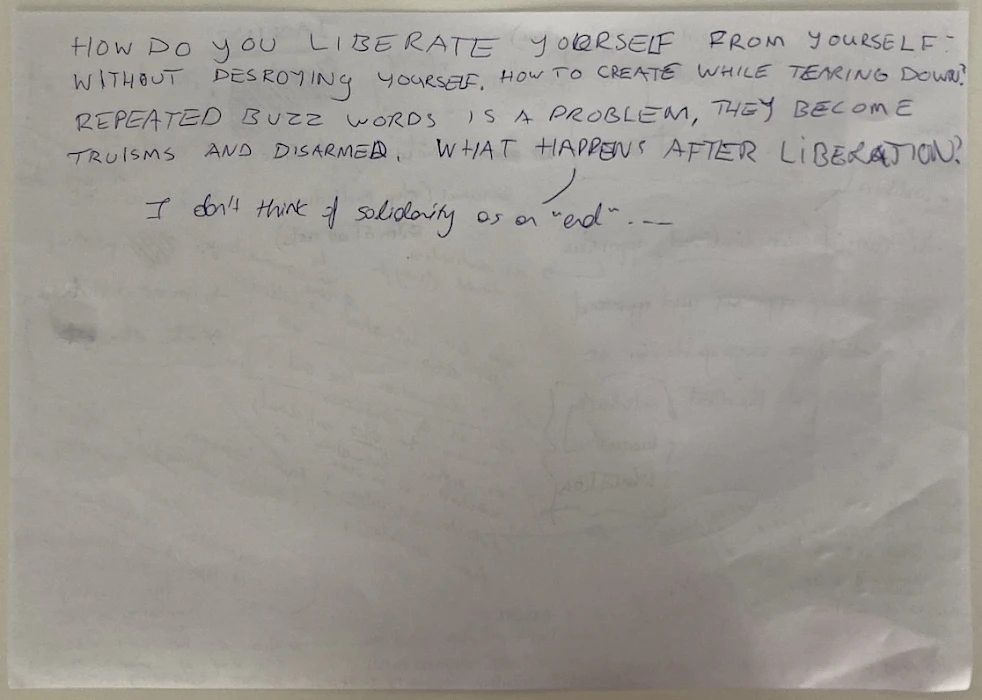 HOW DO YOU LIBERATE YOURSELF FROM YOURSELF -
WITHOUT DESROYING YOURSELF. HOW TO CREATE WHILE TEARING DOWN?
REPEATED BUZZ WORDS IS A PROBLEM, THEY BECOME
TRUISMS AND DISARMED. WHAT HAPPENS AFTER LIBERATION?
I don't think of solidarity as an "end" . —